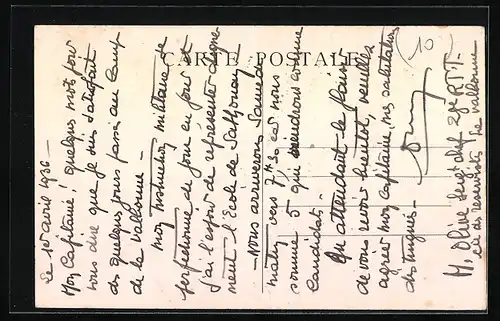 Le 10 avril 1936 -
Mon Capitaine! quelques mots pour
vous dire que je suis satisfait
des quelques jours passés au Camp
de la Valbonne -
mon instruction militaire se
perfectionne de jour en jour et
j'ai l'espoir de représenter digne
ment l'Ecole de Sathonay -
- Nous arriverons Samedi
matin vers 7h30 car nous
sommes 5 qui viendrons comme
candidats.
En attendant le plaisir
de vous revoir bientôt, veuillez
agréer mon capitaine, mes salutations
distinguées -
M. Olive Sergt chef 28e RTT.
de la Valbonne
CARTE POSTALE
10